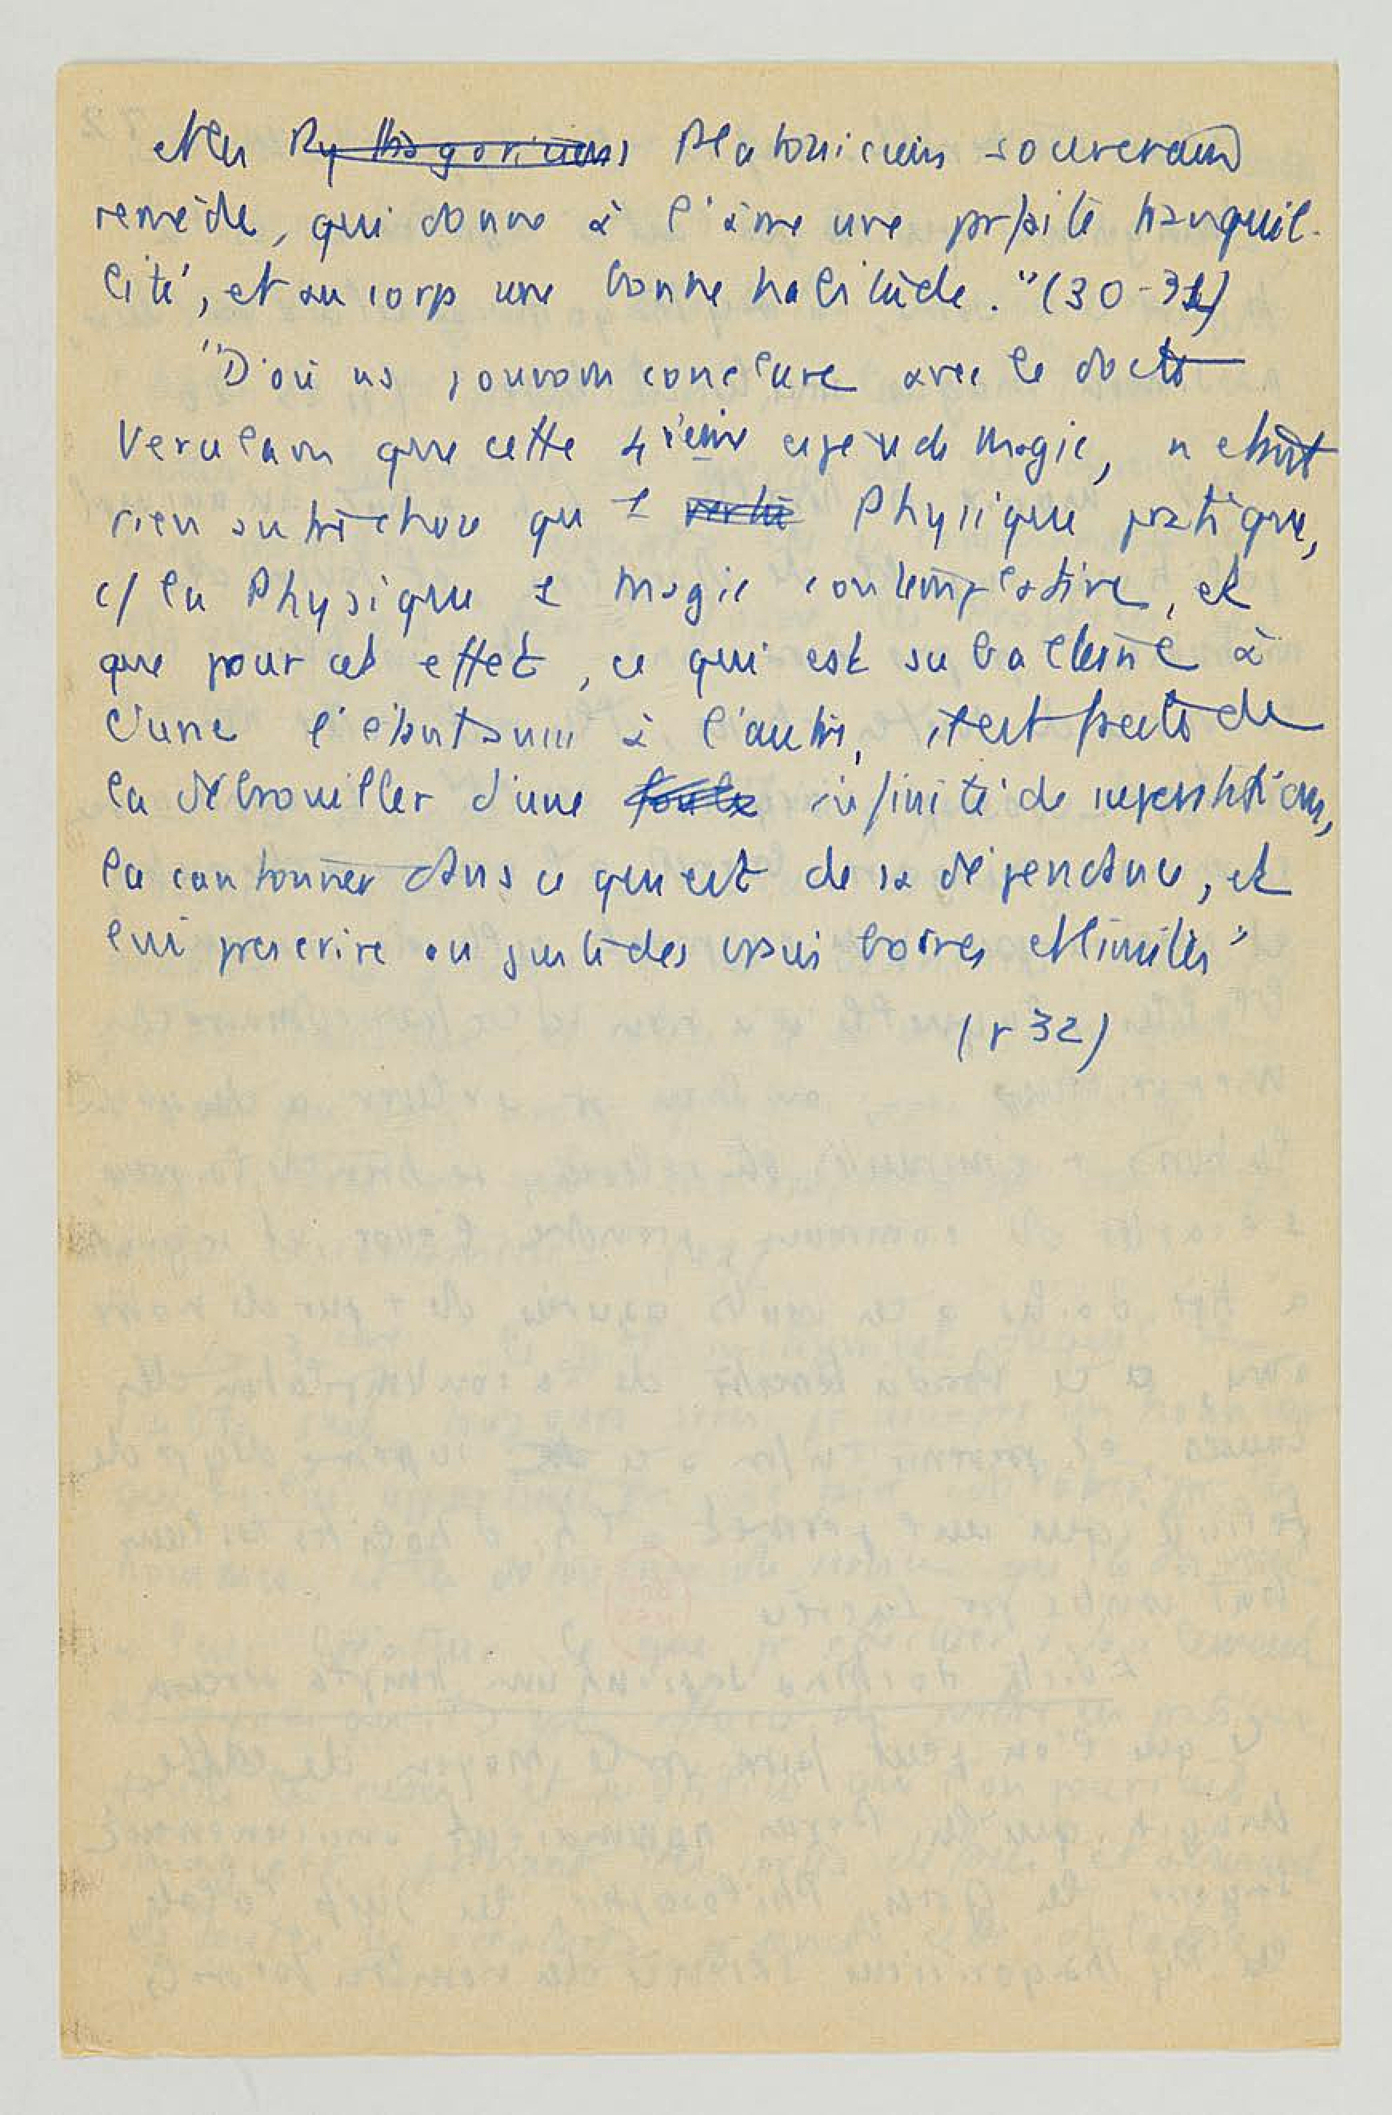 et les Pythagoriciens Platoniciens souverain
remède, qui donne à l'âme une pfaite tranquil-
lité, et au corps une bonne habitude." (30-31)
"D'où ns pouvons conclure avec le docte
Verulam que cette 4ieme espèce de Magie, n'était
rien autre chose qu'1 vertu Physique pratique,
c/ la Physique 1 Magie contemplative, et
que pour cet effet, ce qui est subalterne à
l'une l'étant aussi à l'autre, il est facile de
la débrouiller d'une foule infinité de superstitions,
la cantonner dans ce qui est de sa dépendance, et
lui prescrire on juste des bornes et limites"
(p 32)